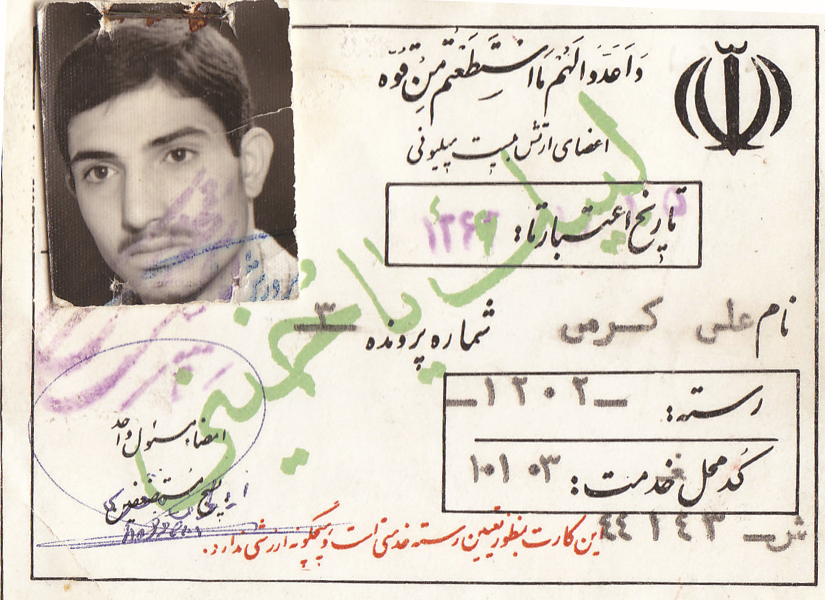 وَاَعِدّوا لَهُم مَا اسْتَطَعْتُم مِنْ قُوَّه
اعضای ارتش بیست میلیونی
تاریخ اعتبار تا: ۱۳۶۲
لبیک یا خمینی
نام علی کرمی
شماره پرونده ۳
رسته: ۱۲۰۲
کُد محل خدمت: ۱۰۱۰۳
امضاء مسئول واحد
بسیج مستضعفین
ش ۴۴۱۴۳
این کارت بمنظور تعیین رسته خدمتی است و هیچگونه ارزشی ندارد.